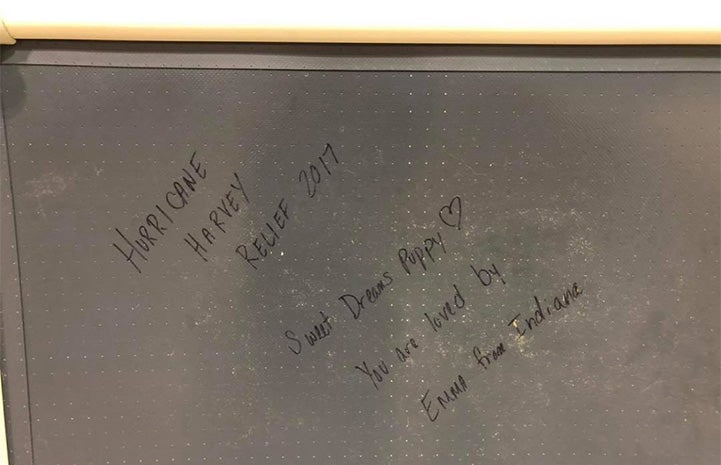 HURRICANE
HARVEY
RELIEF 2017
Sweet Dreams Puppy ♡
You are loved by
Emma from Indiana